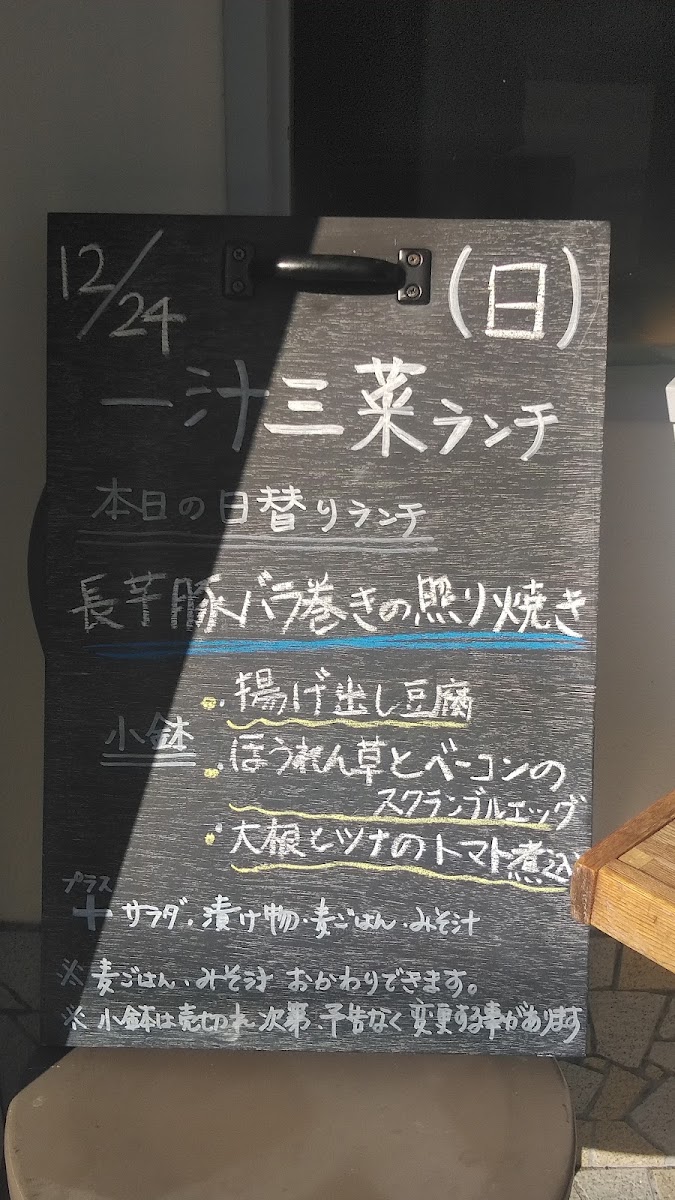 12/24 (日)
一汁三菜ランチ
本日の日替りランチ
長芋豚バラ巻きの照り焼き
小鉢
・揚げ出し豆腐
・ほうれん草とベーコンの
スクランブルエッグ
・大根とツナのトマト煮込
プラス
+ サラダ・漬け物・麦ごはん・みそ汁
※ 麦ごはん・みそ汁 おかわりできます。
※ 小鉢は売切れ次第、予告なく変更する事があります